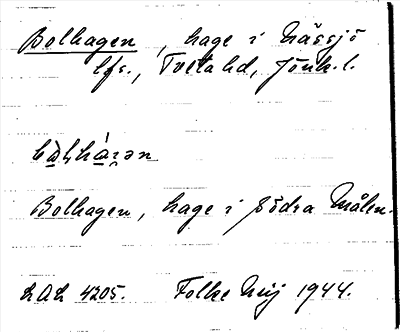 Bolhagen, hage i Nässjö
lfs., Tveta hd, Jönk. l.
Bolhagen, hage i Södra Målen.
LAL 4205. Folke Mij 1944.